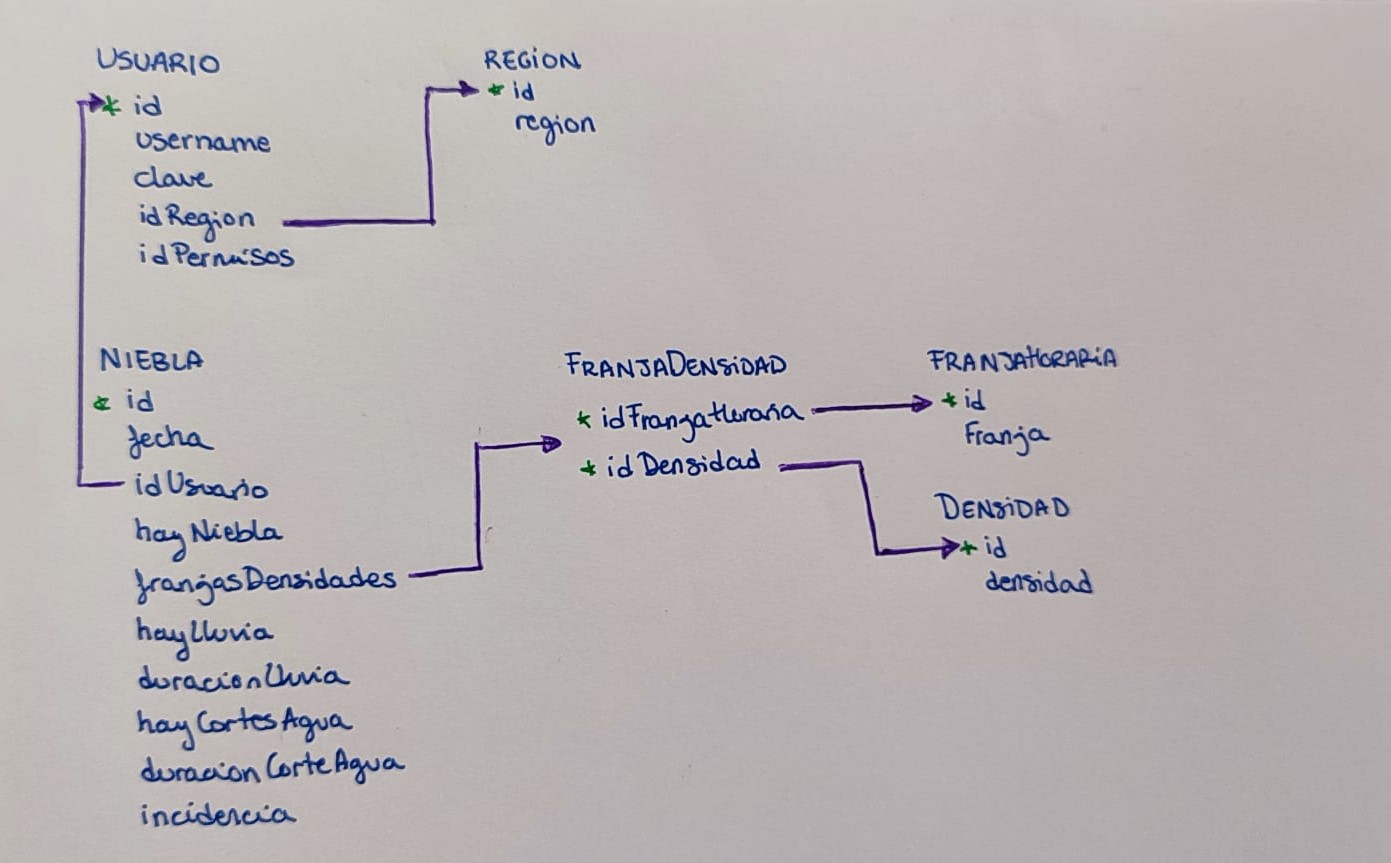 USUARIO
* id
username
clave
idRegion
idPermisos
REGION
* id
region
NIEBLA
* id
fecha
idUsuario
hayNiebla
franjasDensidades
haylluvia
duracionlluvia
hayCortesAgua
duracionCorteAgua
incidencia
FRANJADENSIDAD
* idFranjaHoraria
* idDensidad
FRANJAHORARIA
* id
Franja
DENSIDAD
* id
densidad